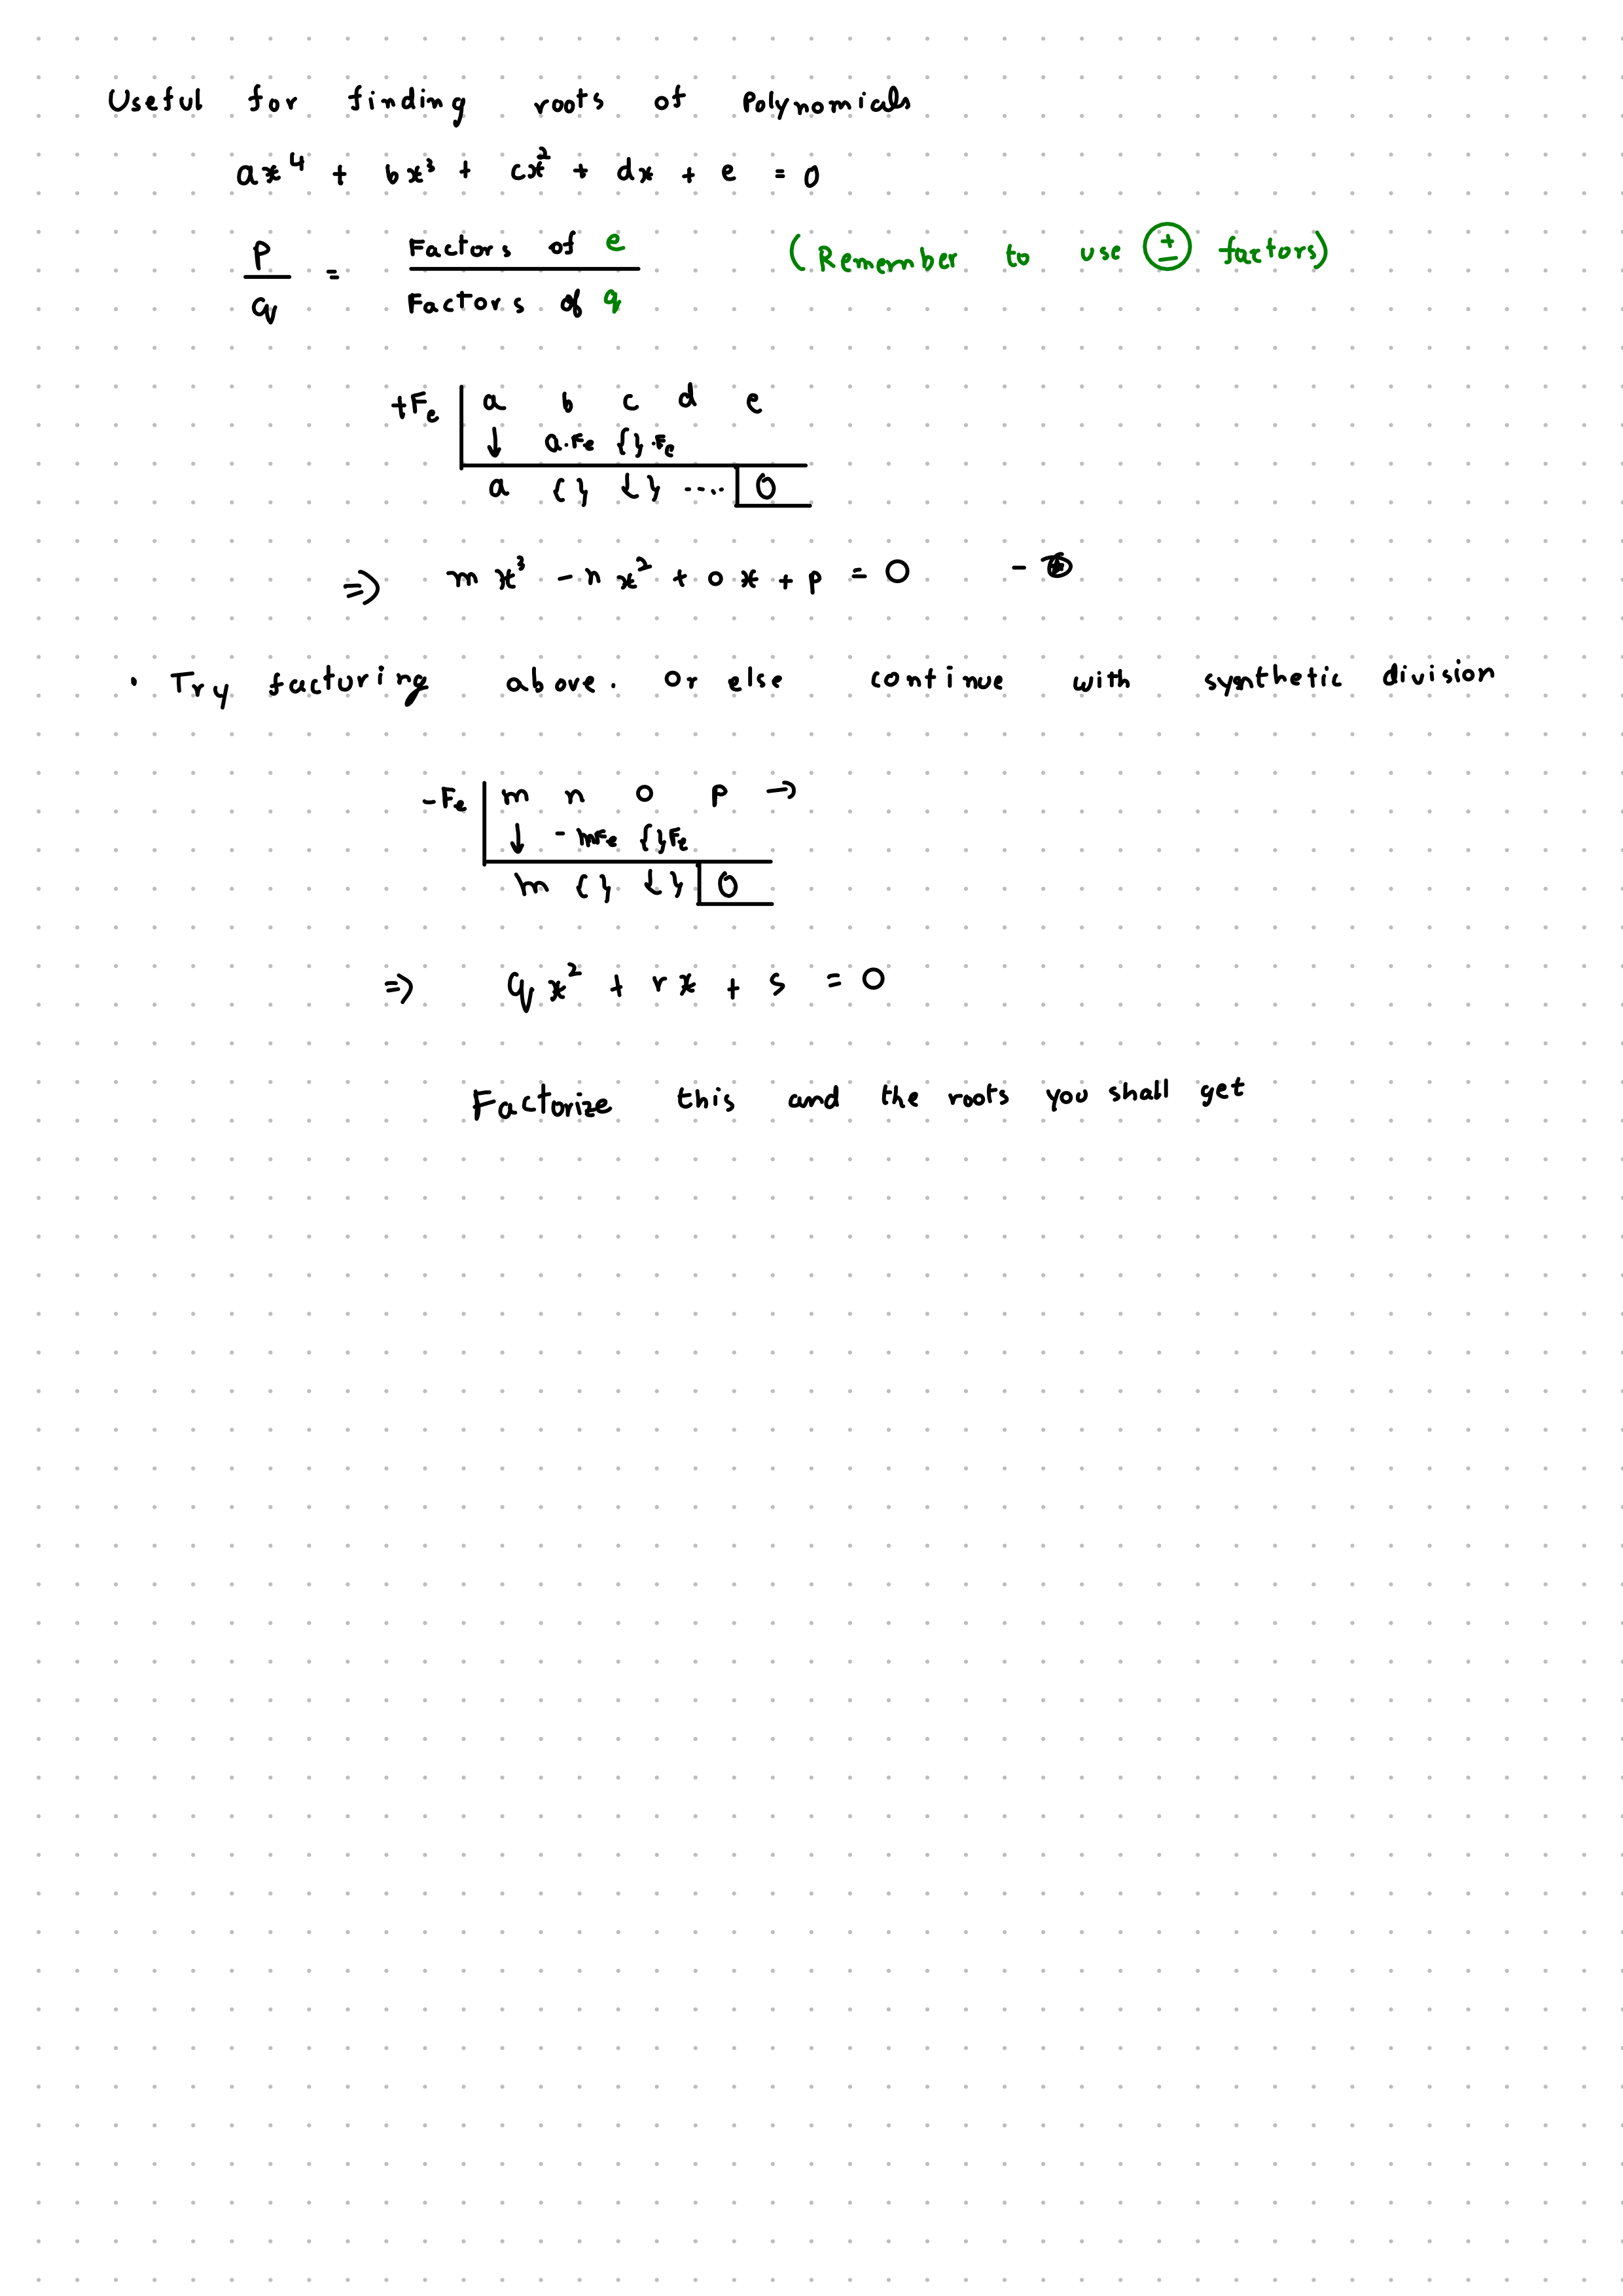 Useful for finding roots of Polynomials
ax⁴ + bx³ + cx² + dx + e = 0
p/q = Factors of e / Factors of q (Remember to use ± factors)
+Fe | a b c d e
↓ a.Fe { }.Fe
a { } { } .... 0
⇒ mx³ - nx² + ox + p = 0 -
• Try facturing above. Or else continue with synthetic division
-Fe | m n o p →
↓ - mFe { }Fe
m { } { } 0
⇒ qx² + rx + s = 0
Factorize this and the roots you shall get